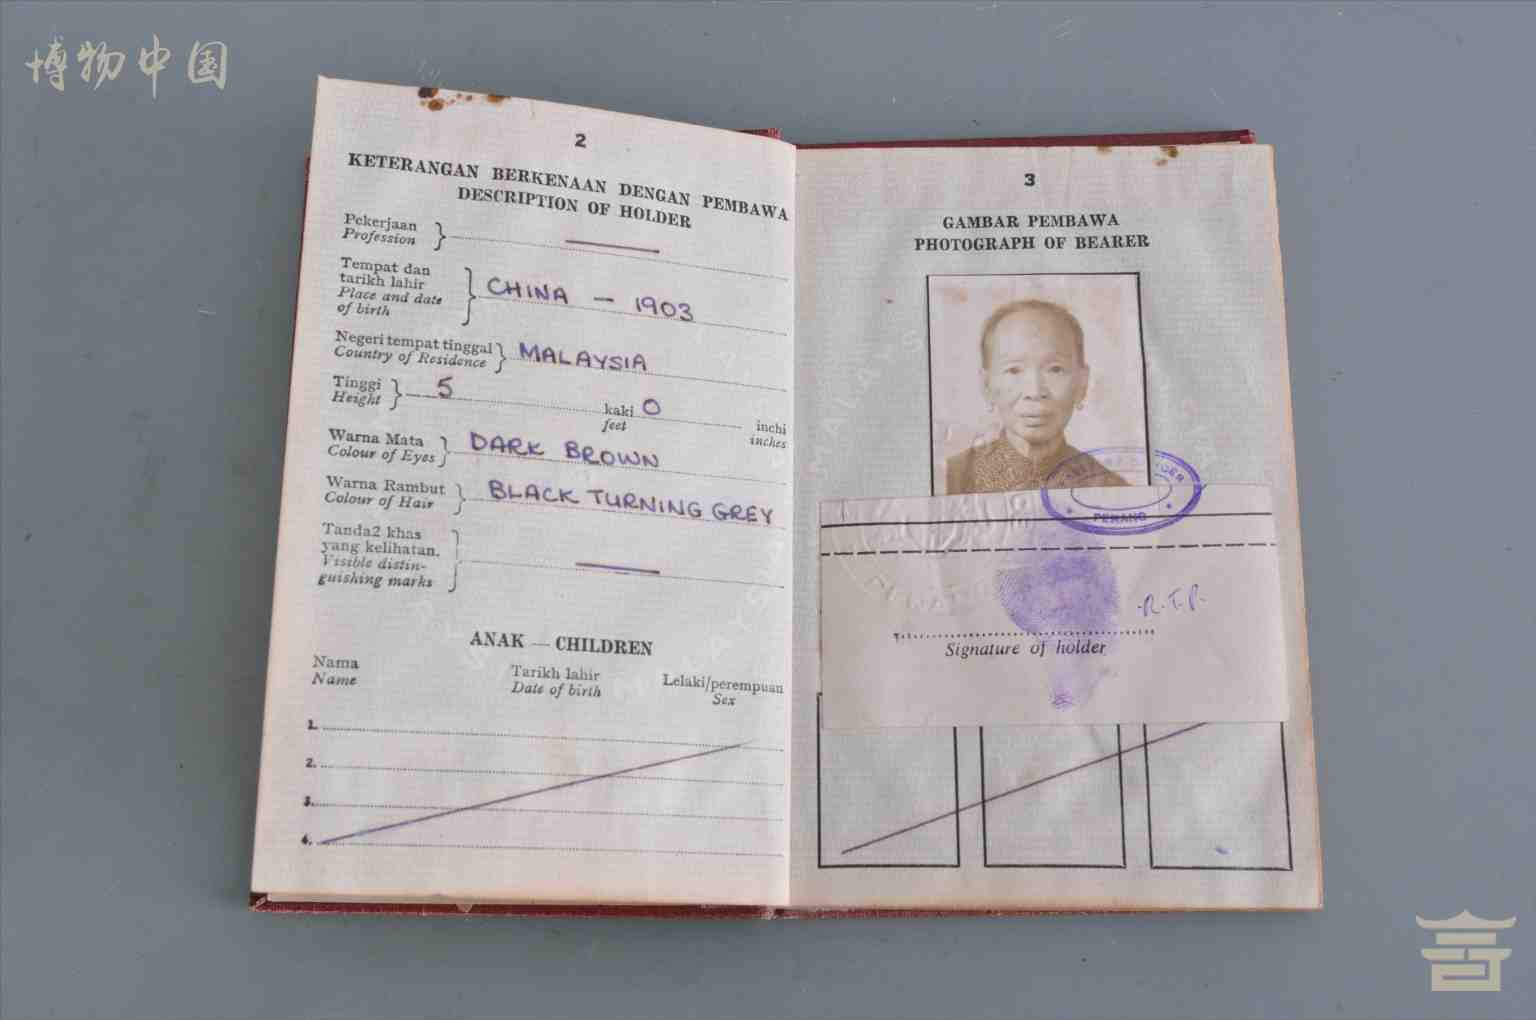 博物中国
2
KETERANGAN BERKENAAN DENGAN PEMBAWA
DESCRIPTION OF HOLDER
Pekerjaan
Profession
Tempat dan
tarikh lahir
Place and date
of birth
CHINA — 1903
Negeri tempat tinggal
Country of Residence
MALAYSIA
Tinggi
Height
5 kaki 0 inchi
feet inches
Warna Mata
Colour of Eyes
DARK BROWN
Warna Rambut
Colour of Hair
BLACK TURNING GREY
Tanda2 khas
yang kelihatan.
Visible distin-
guishing marks
ANAK — CHILDREN
Nama Tarikh lahir Lelaki/perempuan
Name Date of birth Sex
1.
2.
3.
4.
3
GAMBAR PEMBAWA
PHOTOGRAPH OF BEARER
PENANG
R.T.P.
Signature of holder